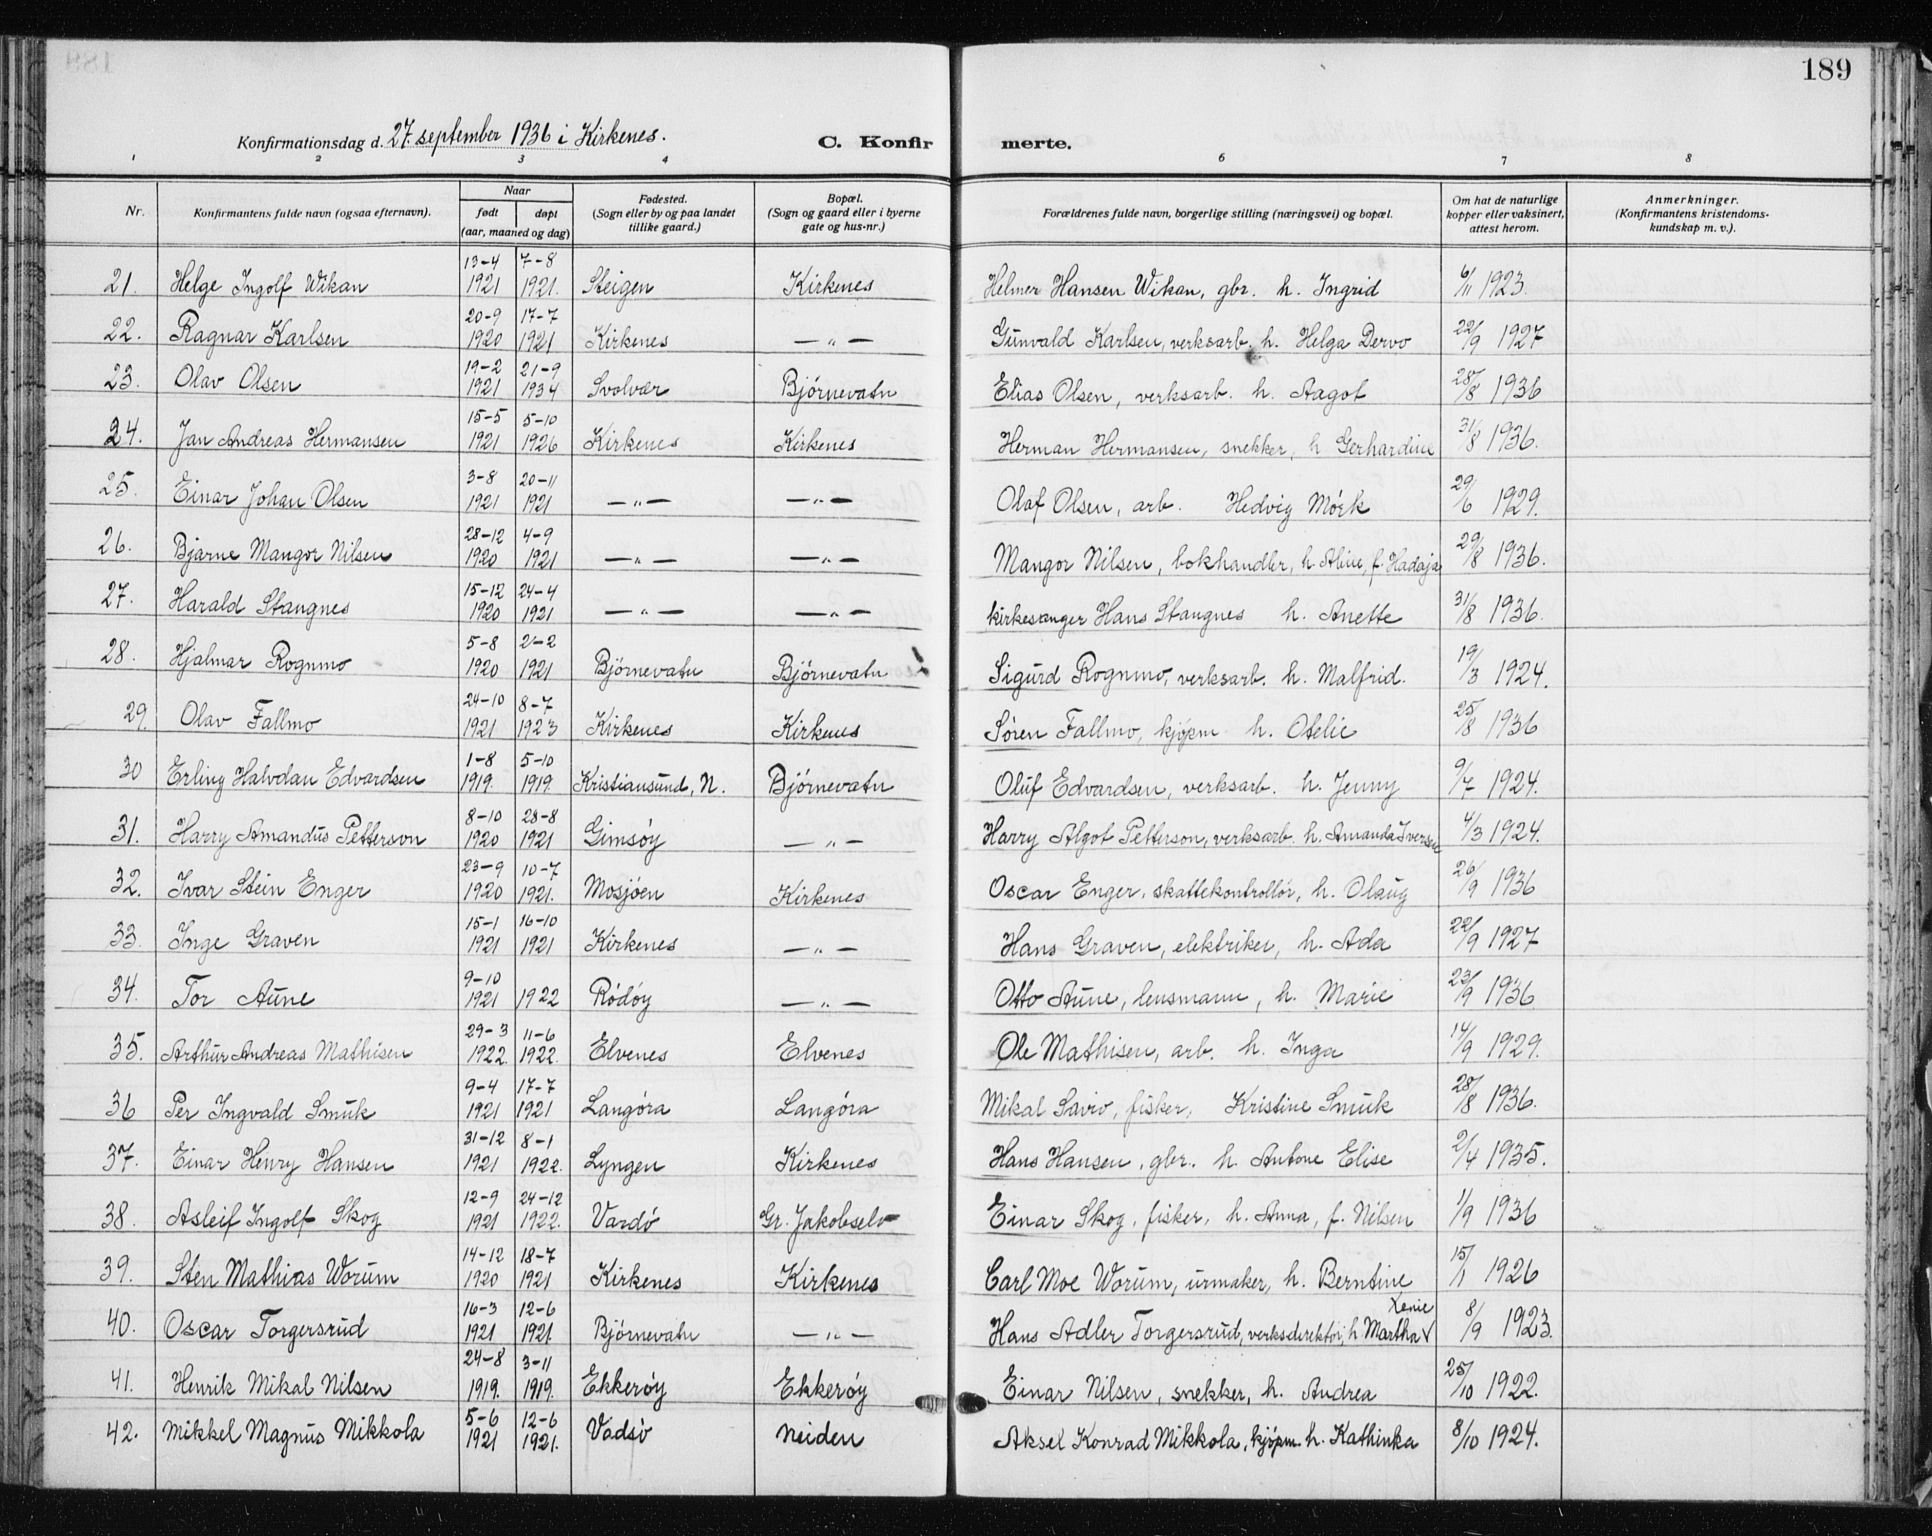 189
Konfirmationsdag d. 27. september 1936 i Kirkenes. C. Konfirmerte.
1 2 3 4 6 7 8
Nr. | Konfirmantens fulde navn (ogsaa efternavn). | Naar født døpt (aar, maaned og dag) | Fødested. (Sogn eller by og paa landet tillike gaard.) | Bopæl. (Sogn og gaard eller i byerne gate og hus-nr.) | Forældrenes fulde navn, borgerlige stilling (næringsvei) og bopæl. | Om hat de naturlige kopper eller vaksinert, attest herom. | Anmerkninger. (Konfirmantens kristendoms-kundskap m. v.).
21. Helge Ingolf Wikan 13-4 1921 7-8 1921. Steigen Kirkenes Helmer Hansen Wikan, gbr. h. Ingrid 6/11 1923.
22. Ragnar Karlsen 20-9 1920 17-7 1921 Kirkenes —„— Gunvald Karlsen, verksarb. h. Helga Dervo 22/9 1927
23. Olav Olsen 19-2 1921 21-9 1934 Svolvær Bjørnevatn Elias Olsen, verksarb. h. Aagot 28/8 1936
24. Jan Andreas Hermansen 15-5 1921 5-10 1926 Kirkenes Kirkenes Herman Hermansen, snekker, h Gerhardine 31/8 1936.
25. Einar Johan Olsen 3-8 1921 20-11 1921 —„— —„— Olaf Olsen, arb. Hedvig Mörk 29/6 1929.
26. Bjarne Mangor Nilsen 28-12 1920 4-9 1921 —„— —„— Mangor Nilsen, bokhandler, h. Aline, f. Hadaja 29/8 1936.
27. Harald Stangnes 15-12 1920 24-4 1921 —„— —„— kirkesanger Hans Stangnes h. Anette 31/8 1936.
28. Hjalmar Rognmo 5-8 1920 2-2 1921 Björnevatn Bjørnevatn Sigurd Rognmo, verksarb. h. Malfrid. 19/3 1924.
29. Olav Fallmo 24-10 1921 8-7 1923 Kirkenes Kirkenes Søren Fallmo, kjøpm. h. Otelie 25/8 1936
30 Erling Halvdan Edvardsen 1-8 1919. 5-10 1919. Kristiansund, N. Bjørnevatn Oluf Edvardsen, verksarb. h. Jenny 9/7 1924.
31. Harry Amandus Petterson 8-10 1920 28-8 1921 Gimsøy —„— Harry Algot Petterson, verksarb. h. Amanda Iversen 4/3 1924.
32. Ivar Stein Enger 23-9 1920 10-7 1921. Mosjøen Kirkenes Oscar Enger, skattekontrollör, h. Olaug 26/9 1936
33. Inge Graven 15-1 1921 16-10 1921 Kirkenes —„— Hans Graven, elektriker, h. Ada 22/9 1927
34. Tor Aune 9-10 1921 1922 Rödöy —„— Otto Aune, lensmann, h. Marie 23/9 1936
35. Arthur Andreas Mathisen 29-3 1922. 11-6 1922. Elvenes Elvenes Ole Mathisen, arb. h. Inga 14/9 1929.
36 Per Ingvald Smuk 9-4 1921 17-7 1921 Langöra Langöra Mikal Savio, fisker, Kristine Smuk 28/8 1936.
37. Einar Henry Hansen 31-12 1921 8-1 1922. Lyngen Kirkenes Hans Hansen, gbr. h. Antone Elise 2/4 1935.
38. Asleif Ingolf Skog 12-9 1921 24-12 1922. Vardö Gr. Jakobselv Einar Skog, fisker, h. Anna, f. Nilsen 1/9 1936
39. Sten Mathias Worum 14-12 1920 18-7 1921 Kirkenes Kirkenes Carl Moe Worum, urmaker, h. Berntine 15/1 1926
40. Oscar Torgersrud 16-3 1921 12-6 1921 Björnevatn —„— Hans Adler Torgersrud, verksdirektör, h. Martha Xenie 8/9 1923.
41. Henrik Mikal Nilsen 24-8 1919. 3-11 1919. Ekkeröy Ekkeröy Einar Nilsen, snekker, h. Andrea 25/10 1922.
42. Mikkel Magnus Mikkola 5-6 1921 12-6 1921. Vadsö Neiden Aksel Konrad Mikkola, kjöpm. h. Kathinka 8/10 1924.